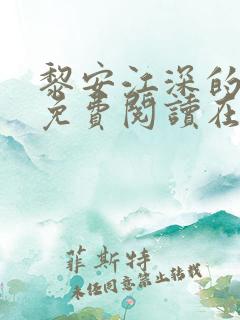 黎安江深的
免費閱讀在
菲斯特
未經同意禁止轉載